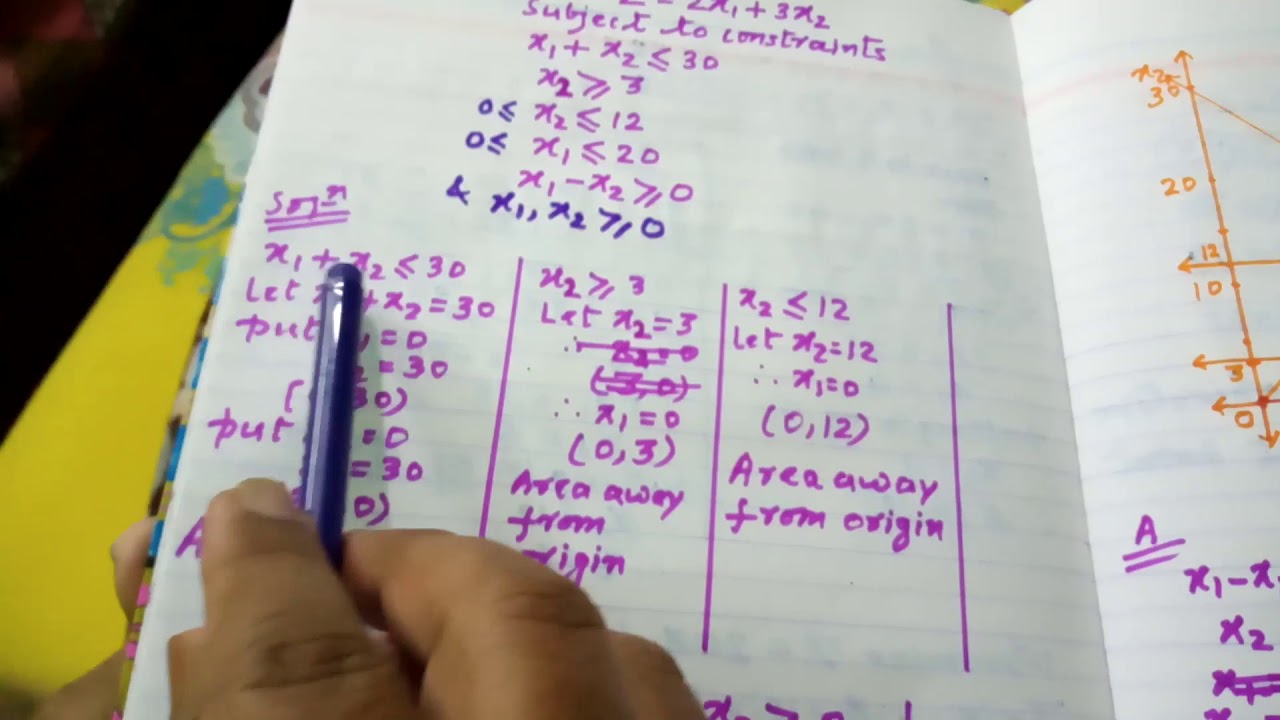 Z = 2x₁ + 3x₂
Subject to constraints
x₁ + x₂ ≤ 30
x₂ ≥ 3
0 ≤ x₂ ≤ 12
0 ≤ x₁ ≤ 20
x₁ - x₂ ≥ 0
& x₁, x₂ ≥ 0
Solⁿ
x₁ + x₂ ≤ 30
Let + x₂ = 30
put ₁ = 0
₂ = 30
( 30)
put = 0
= 30
0)
A
x₂ ≥ 3
Let x₂ = 3
∴ x₂ = 0
(3, 0)
∴ x₁ = 0
(0, 3)
Area away
from
origin
x₂ ≤ 12
Let x₂ = 12
∴ x₁ = 0
(0, 12)
Area away
from origin
x₂
30
20
12
10
3
0
A
x₁ - x
x₂